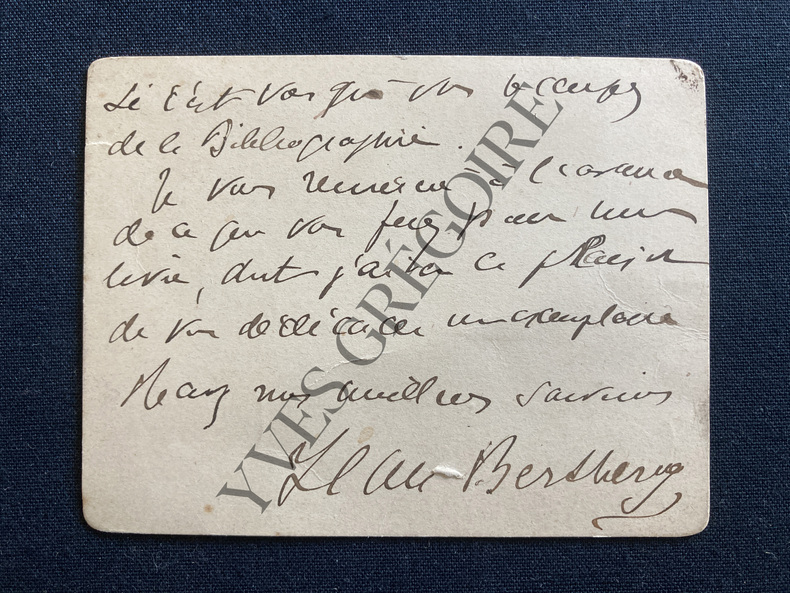 si c'est vous qui vous occupez
de la Bibliographie.
Je vous remercie à l'avance
de ce que vous ferez pour mon
livre, dont j'ai eu le plaisir
de vous dédicacer un exemplaire
mes meilleurs souvenirs
Jean Bertheroy
YVES GRÉGOIRE